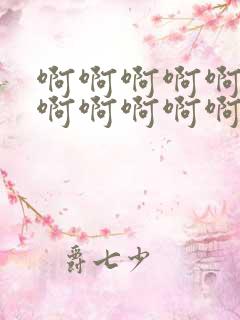 啊啊啊啊啊
啊啊啊啊啊
爵七少